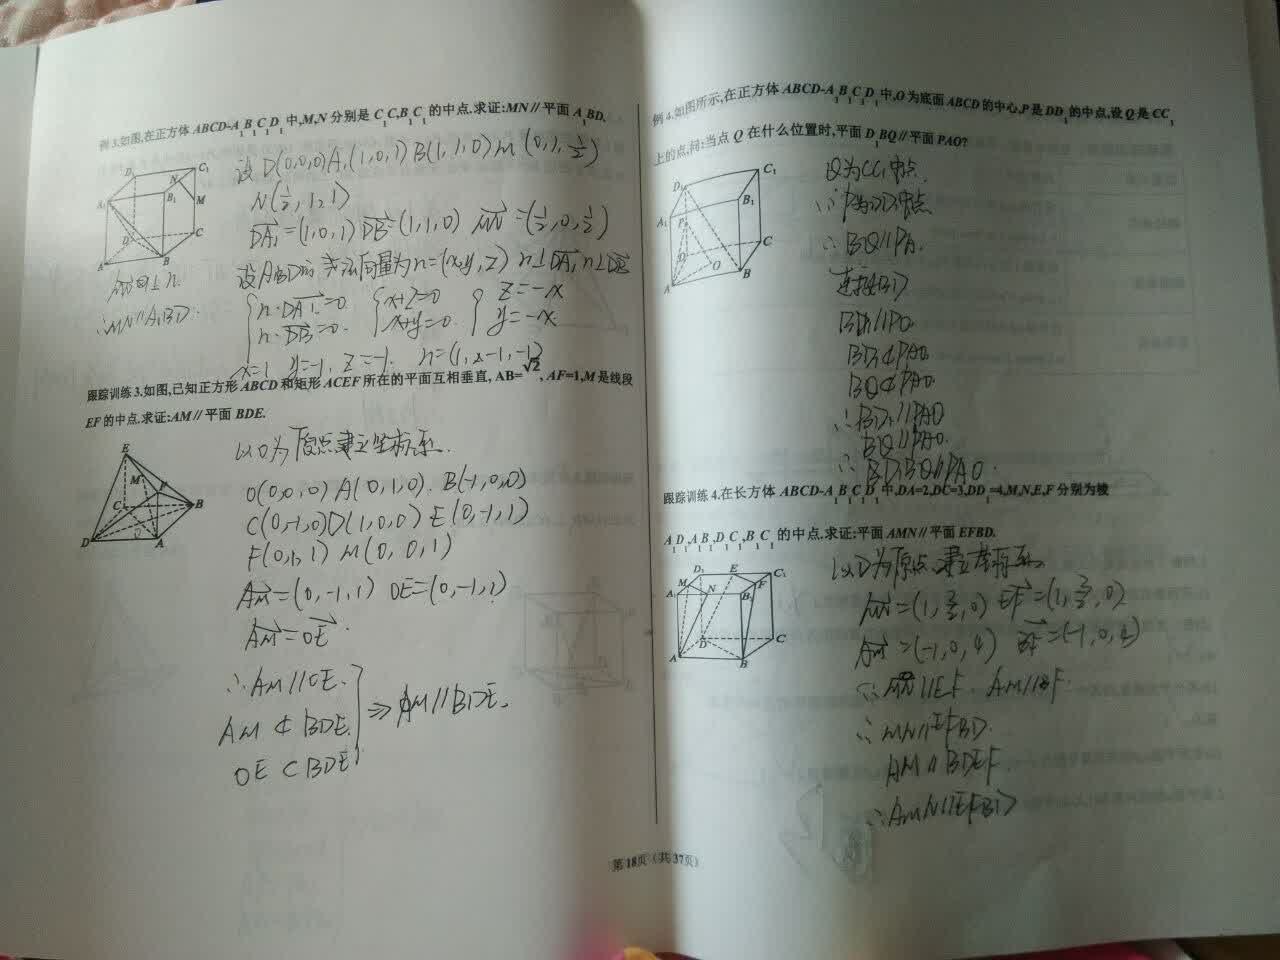 例3.如图,在正方体ABCD-A₁B₁C₁D₁中,M,N分别是C₁C,B₁C₁的中点.求证:MN∥平面A₁BD.
设D(0,0,0)A₁(1,0,1)B(1,1,0)M(0,1,½)
N(½,1,1)
DA₁=(1,0,1) DB=(1,1,0) MN=(½,0,½)
设A₁BD的法向量为n=(x,y,z) n⊥DA₁ n⊥DB
n·DA₁=0 x+z=0 z=-x
n·DB=0. x+y=0. y=-x
x=1 y=-1, z=-1. n=(1,-1,-1)
⊥n.
∴MN∥A₁BD.
D₁ C₁ N A₁ B₁ M D C A B
跟踪训练3.如图,已知正方形ABCD和矩形ACEF所在的平面互相垂直, AB=√2, AF=1,M是线段
EF的中点.求证:AM∥平面BDE.
E M F C B D A
以O为原点建立坐标系.
O(0,0,0) A(0,1,0). B(-1,0,0)
C(0,-1,0)D(1,0,0) E(0,-1,1)
F(0,1,1) M(0,0,1)
AM=(0,-1,1) OE=(0,-1,1)
AM=OE.
∴AM∥OE.
AM⊄BDE. ⇒AM∥BDE.
OE⊂BDE
例4.如图所示,在正方体ABCD-A₁B₁C₁D₁中,O为底面ABCD的中心,P是DD₁的中点,设Q是CC₁
上的点,问:当点Q在什么位置时,平面D₁BQ∥平面PAO?
D₁ C₁ A₁ B₁ P D C O A B
Q为CC₁中点.
∵P为DD₁中点
∴BQ∥PA.
连接DB
BD₁∥PO
BD₁⊄PAO.
BQ⊄PAO.
∴BD₁∥PAO
BQ∥PAO.
∴BD₁BQ∥PAO.
跟踪训练4.在长方体ABCD-A₁B₁C₁D₁中,DA=2,DC=3,DD₁=4,M,N,E,F分别为棱
A₁D₁,A₁B₁,D₁C₁,B₁C₁的中点.求证:平面AMN∥平面EFBD.
D₁ E C₁ M N F A₁ B₁ D C A B
以D为原点,建立坐标系.
MN=(1,3/2,0) EF=(1,3/2,0)
AM=(-1,0,4) BF=(-1,0,4)
∴MN∥EF. AM∥BF.
∴MN∥EFBD.
AM∥BDEF.
∴AMN∥EFBD
第18页（共37页）